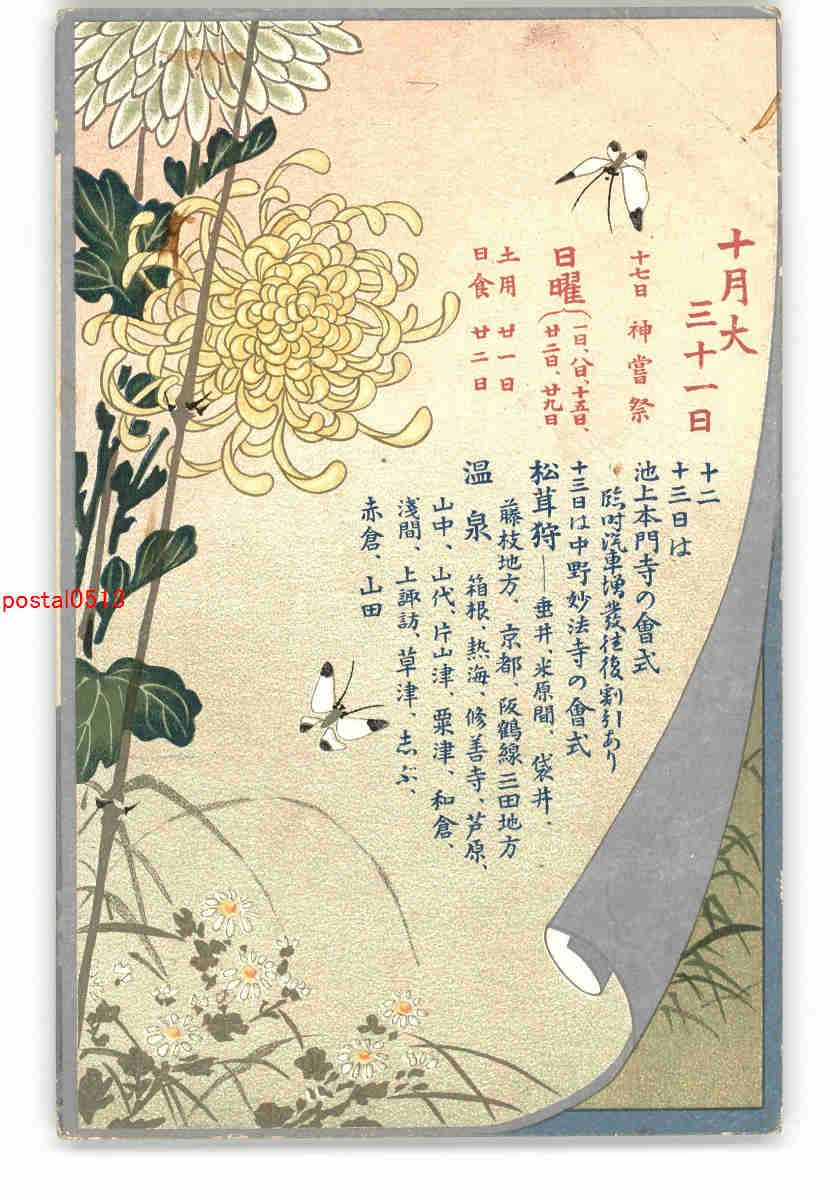 十月大
三十一日
十七日 神嘗祭
日曜
一日、八日、十五日、
廿二日、廿九日
土用 廿一日
日食 廿二日
十二
十三日は
池上本門寺の會式
臨時汽車増發往復割引あり
十三日は中野妙法寺の會式
松茸狩──垂井、米原間、袋井、
藤枝地方、京都、阪鶴線三田地方
温泉 箱根、熱海、修善寺、芦原、
山中、山代、片山津、粟津、和倉、
浅間、上諏訪、草津、志ぶ、
赤倉、山田
postal0513